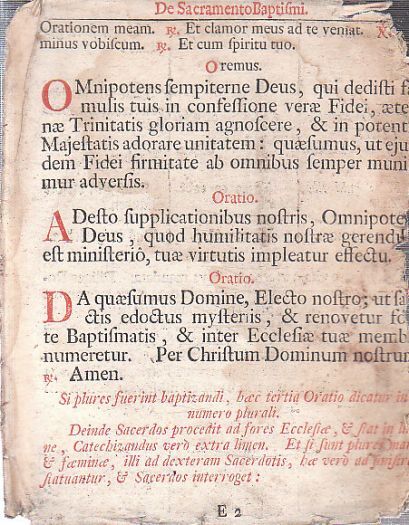 De Sacramento Baptismi.
Orationem meam. ℟. Et clamor meus ad te veniat.
minus vobiscum. ℟. Et cum spiritu tuo.
Oremus.
OMnipotens sempiterne Deus, qui dedisti fa
mulis tuis in confessione veræ Fidei, æte
næ Trinitatis gloriam agnoscere, & in potent
Majestatis adorare unitatem: quæsumus, ut eju
dem Fidei firmitate ab omnibus semper muni
mur adversis.
Oratio.
ADesto supplicationibus nostris, Omnipote
Deus, quod humilitatis nostræ gerendu
est ministerio, tuæ virtutis impleatur effectu.
Oratio.
DA quæsumus Domine, Electo nostro; ut sa
ctis edoctus mysteriis, & renovetur fo
te Baptismatis, & inter Ecclesiæ tuæ memb
numeretur. Per Christum Dominum nostrum
℟. Amen.
Si plures fuerint baptizandi, hæc tertia Oratio dicatur in
numero plurali.
Deinde Sacerdos procedit ad fores Ecclesiæ, & stat in li
ne, Catechizandus verò extra limen. Et si sunt plures ma
& fæminæ, illi ad dexteram Sacerdotis, hæ verò ad sinistr
statuantur, & Sacerdos interroget:
E 2